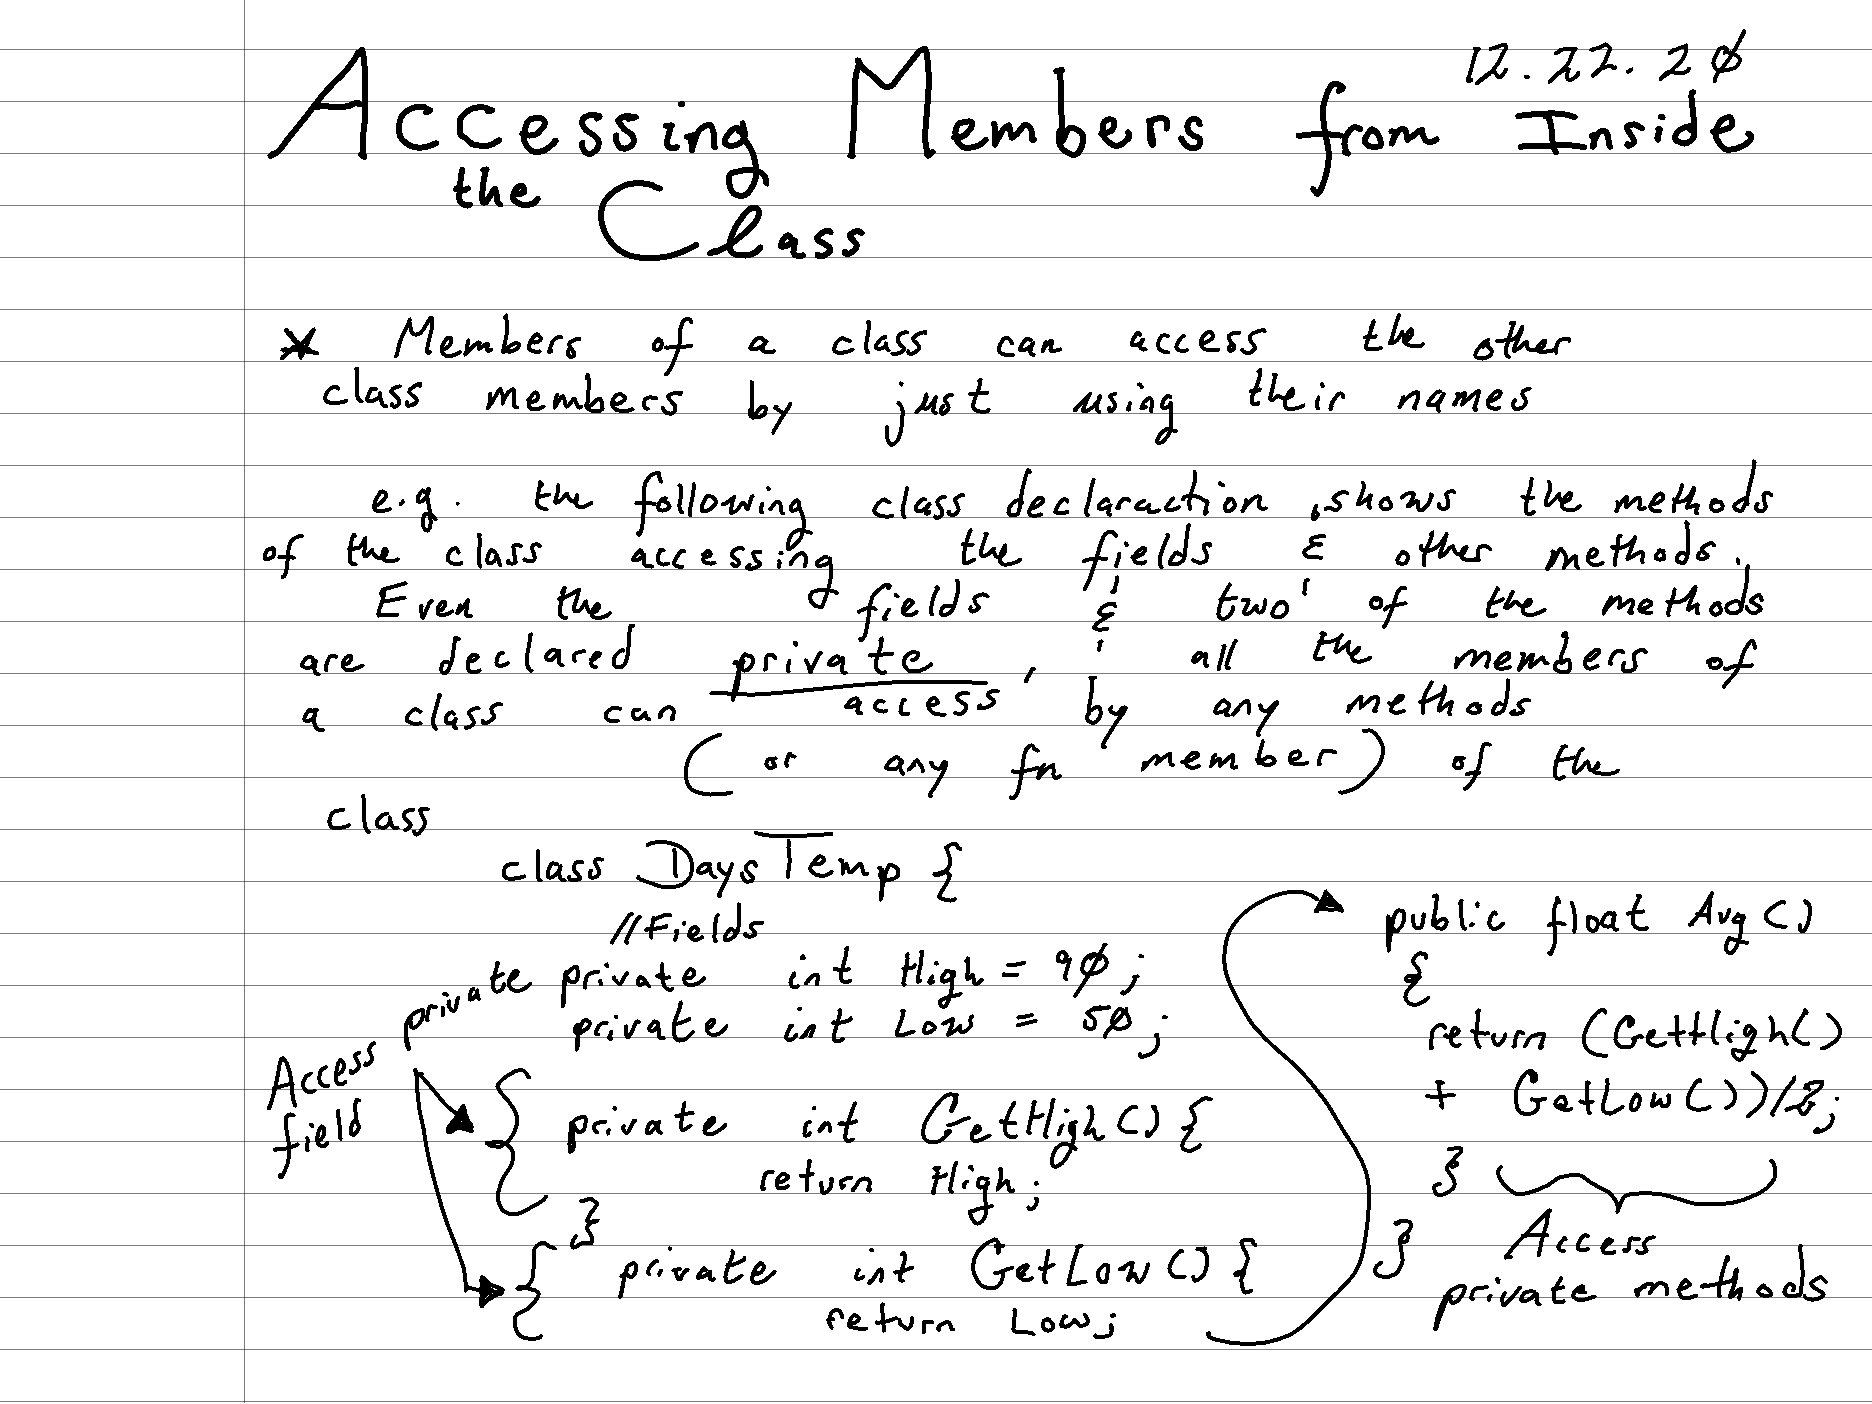 12.22.20
Accessing Members from Inside
the Class
* Members of a class can access the other
class members by just using their names
e.g. the following class declaraction, shows the methods
of the class accessing the fields & other methods.
Even the fields & two of the methods
are declared private, all the members of
a class can access by any methods
(or any fn member) of the
class
class DaysTemp {
//Fields
private int High = 90;
private int Low = 50;
Access private
field
private int GetHigh() {
return High;
}
private int GetLow() {
return Low;
public float Avg()
{
return (GetHigh()
+ GetLow())/2;
}
}
Access
private methods